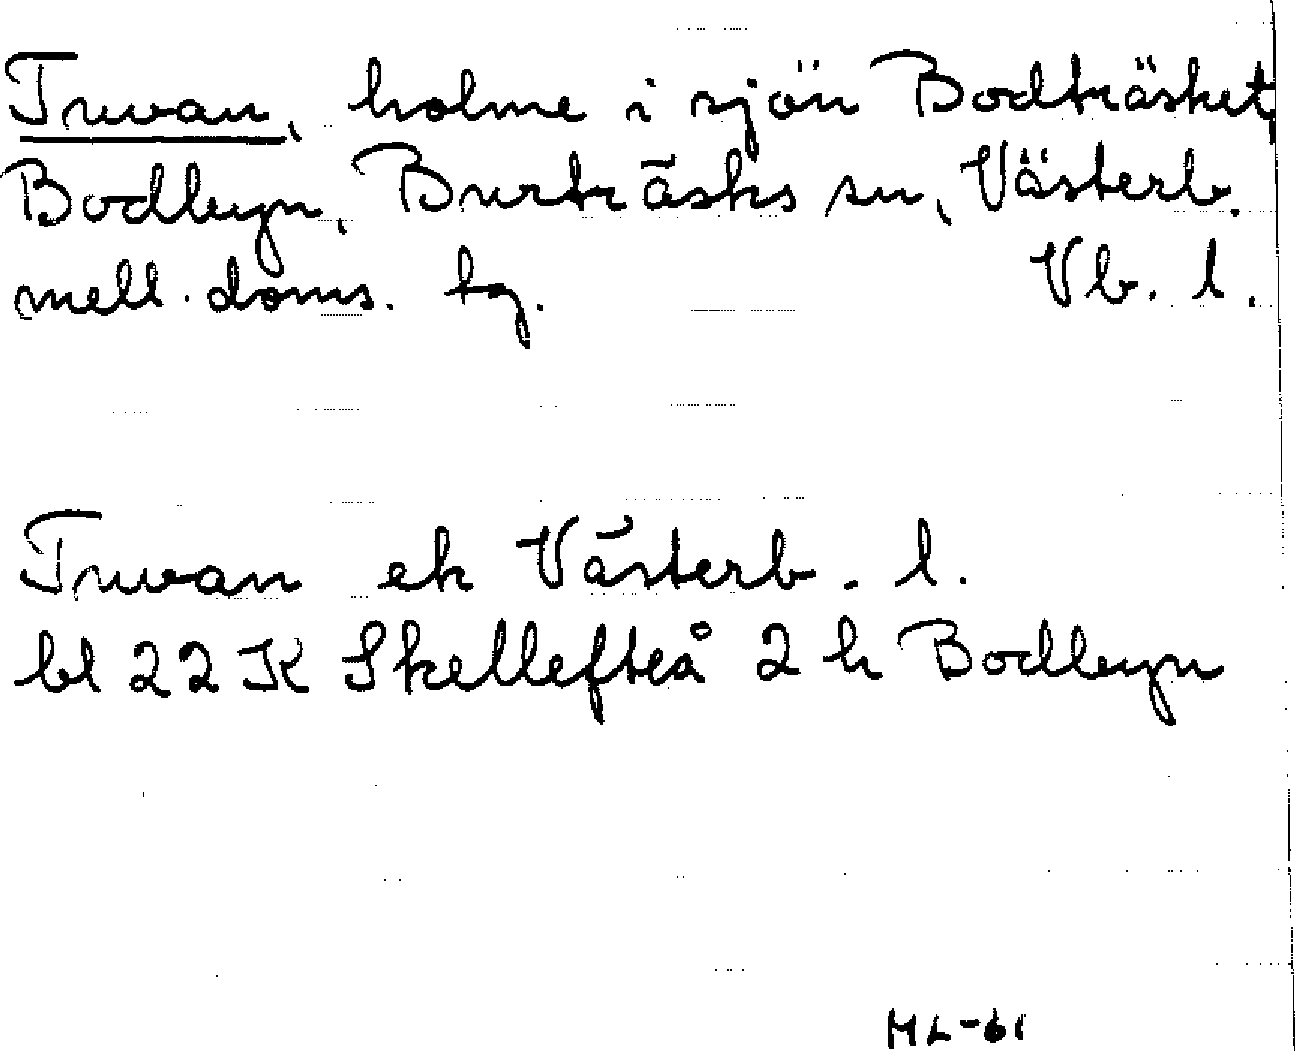 Truvan, holme i sjön Bodträsket,
Bodbyn, Burträsks sn, Västerb.
mell. doms. tg. Vb. l.
Truvan ek Västerb. l.
bl 22 K Skellefteå 2 h Bodbyn
ML-61